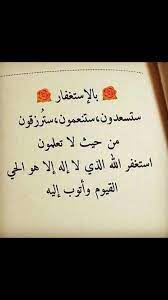 بالإستغفار
ستسعدون،ستنعمون،ستُرزقون
من حيث لا تعلمون
استغفر الله الذي لا إله إلا هو الحي
القيوم وأتوب إليه